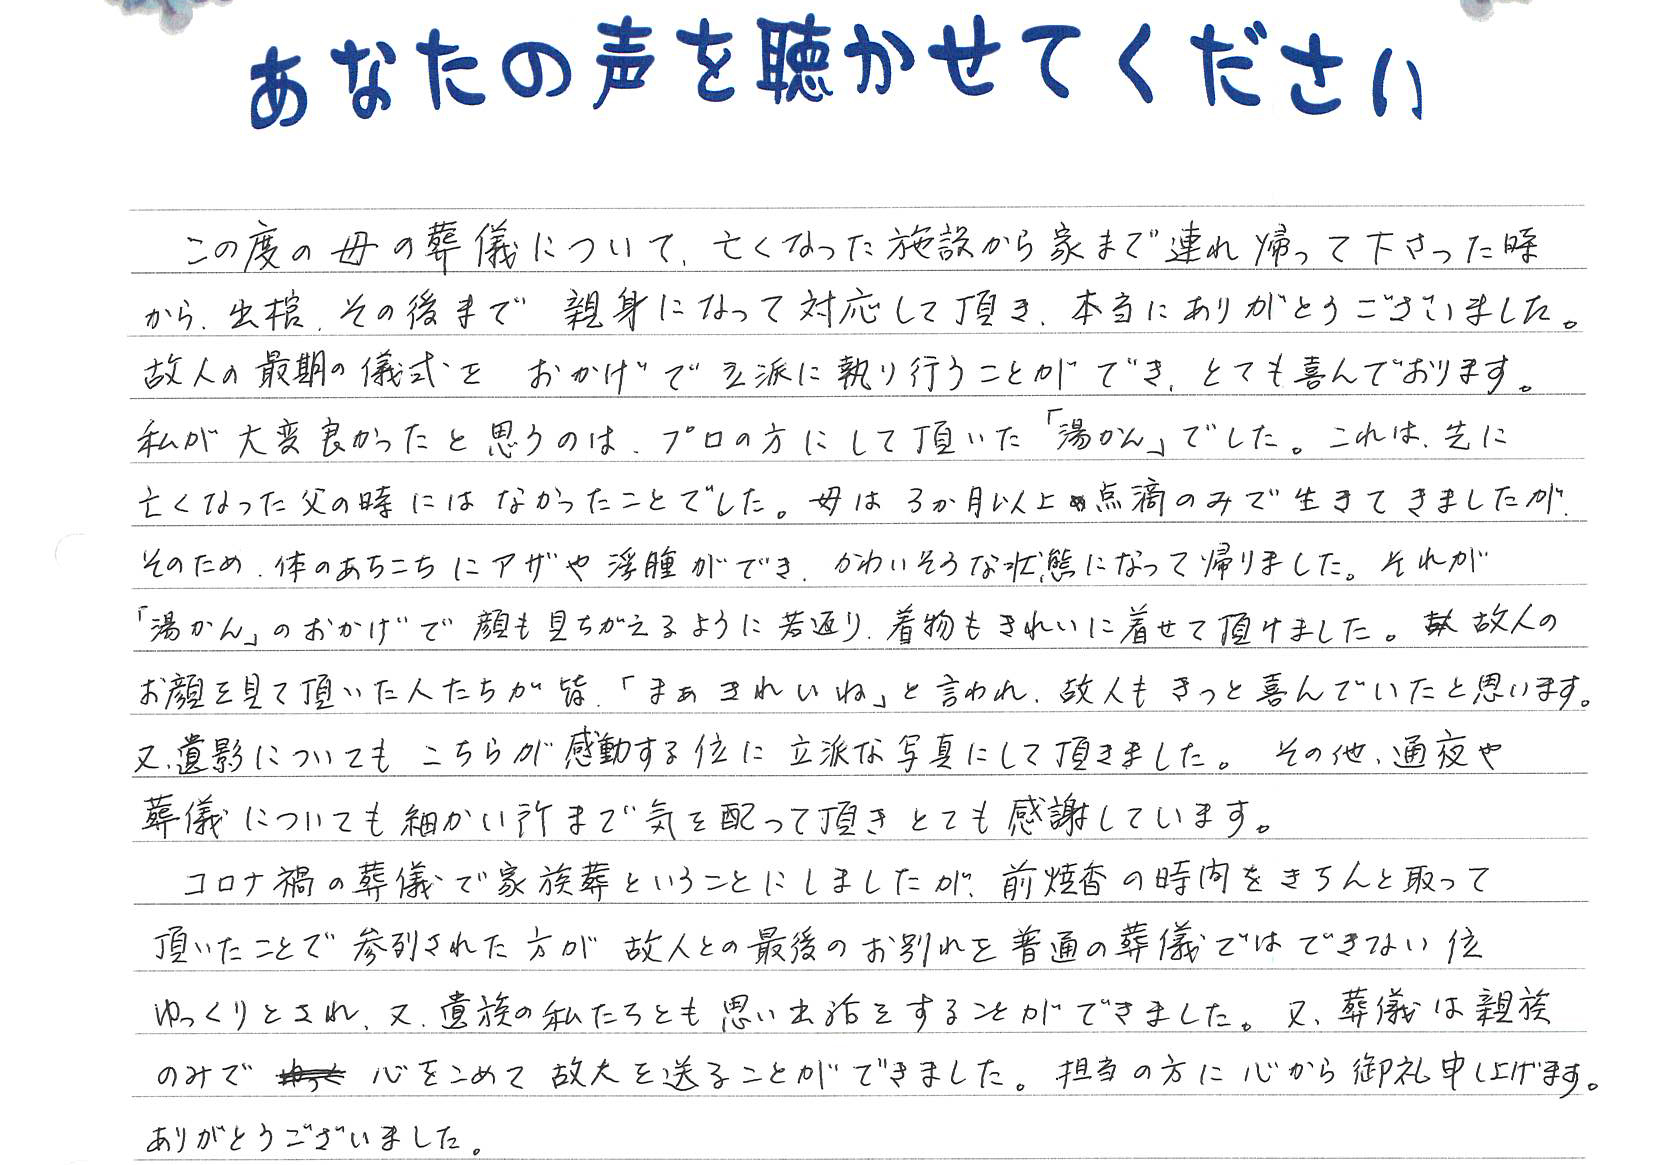 あなたの声を聴かせてください
この度の母の葬儀について、亡くなった施設から家まで連れ帰って下さった時
から、出棺、その後まで 親身になって対応して頂き、本当にありがとうございました。
故人の最期の儀式を おかげで立派に執り行うことができ、とても喜んでおります。
私が大変良かったと思うのは、プロの方にして頂いた「湯かん」でした。これは、先に
亡くなった父の時にはなかったことでした。母は3か月以上点滴のみで生きてきましたが、
そのため、体のあちこちにアザや浮腫ができ、かわいそうな状態になって帰りました。それが
「湯かん」のおかげで顔も見ちがえるように若返り、着物もきれいに着せて頂けました。故人の
お顔を見て頂いた人たちが皆、「まぁきれいね」と言われ、故人もきっと喜んでいたと思います。
又、遺影についても こちらが感動する位に立派な写真にして頂きました。その他、通夜や
葬儀についても細かい所まで気を配って頂きとても感謝しています。
コロナ禍の葬儀で家族葬ということにしましたが、前焼香の時間をきちんと取って
頂いたことで参列された方が故人との最後のお別れを普通の葬儀ではできない位
ゆっくりとされ、又、遺族の私たちとも思い出話をすることができました。又、葬儀は親族
のみで 心をこめて故人を送ることができました。担当の方に心から御礼申し上げます。
ありがとうございました。